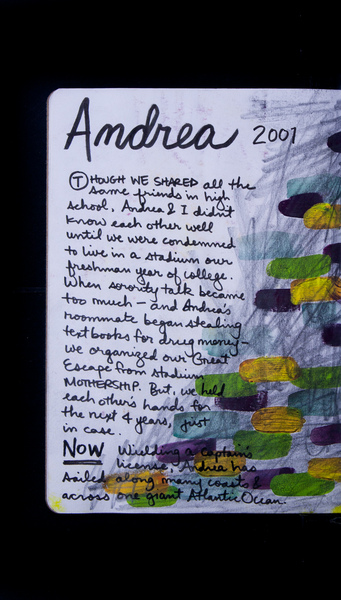 Andrea 2001
THOUGH WE SHARED all the
same friends in high
school, Andrea & I didn't
know each other well
until we were condemned
to live in a stadium our
freshman year of college.
When sorority talk became
too much — and Andrea's
roommate began stealing
textbooks for drug money —
we organized our Great
Escape from Stadium
MOTHERSHIP. But, we held
each other's hands for
the next 4 years, just
in case.
NOW Wielding a captain's
license, Andrea has
sailed along many coasts &
across one giant Atlantic Ocean.